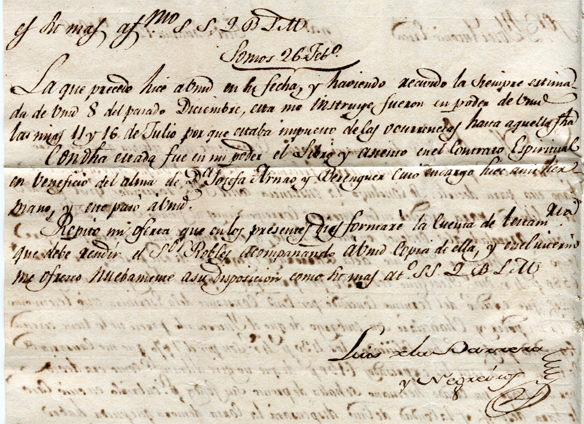 es Su mas at.mo S S Q B L M
Somos 26 Feb.o
La que precede hice a Vmd en la fecha, y haviendo recivido la siempre estima
da de Vmd 8 del pasado Diciembre, esta me instruye fueron en poder de Vmd
las mias 11 y 16 de Julio por que estaba impuesto de las ocurrencias hasta aquella fha
Con dha citada fue en mi poder el libro y anento en el Contrato Espiritual
en beneficio del alma de D.a Josefa y Berenguer cuio encargo hice a mi Her
mano, y
Repito mi oferta que en los presentes dias formaré la Cuenta de
que debe rendir el S.r Robles acompañando a Vmd Copia de ella, y
me ofresco nuebamente a su disposicion como Su mas at.o S S Q B L M
Luis de la Barrera
y Negreiros